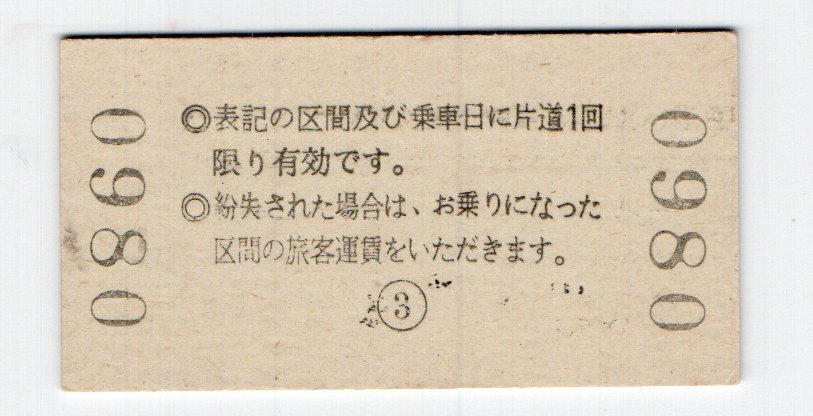 0980
◎表記の区間及び乗車日に片道1回
限り有効です。
◎紛失された場合は、お乗りになった
区間の旅客運賃をいただきます。
③
0980